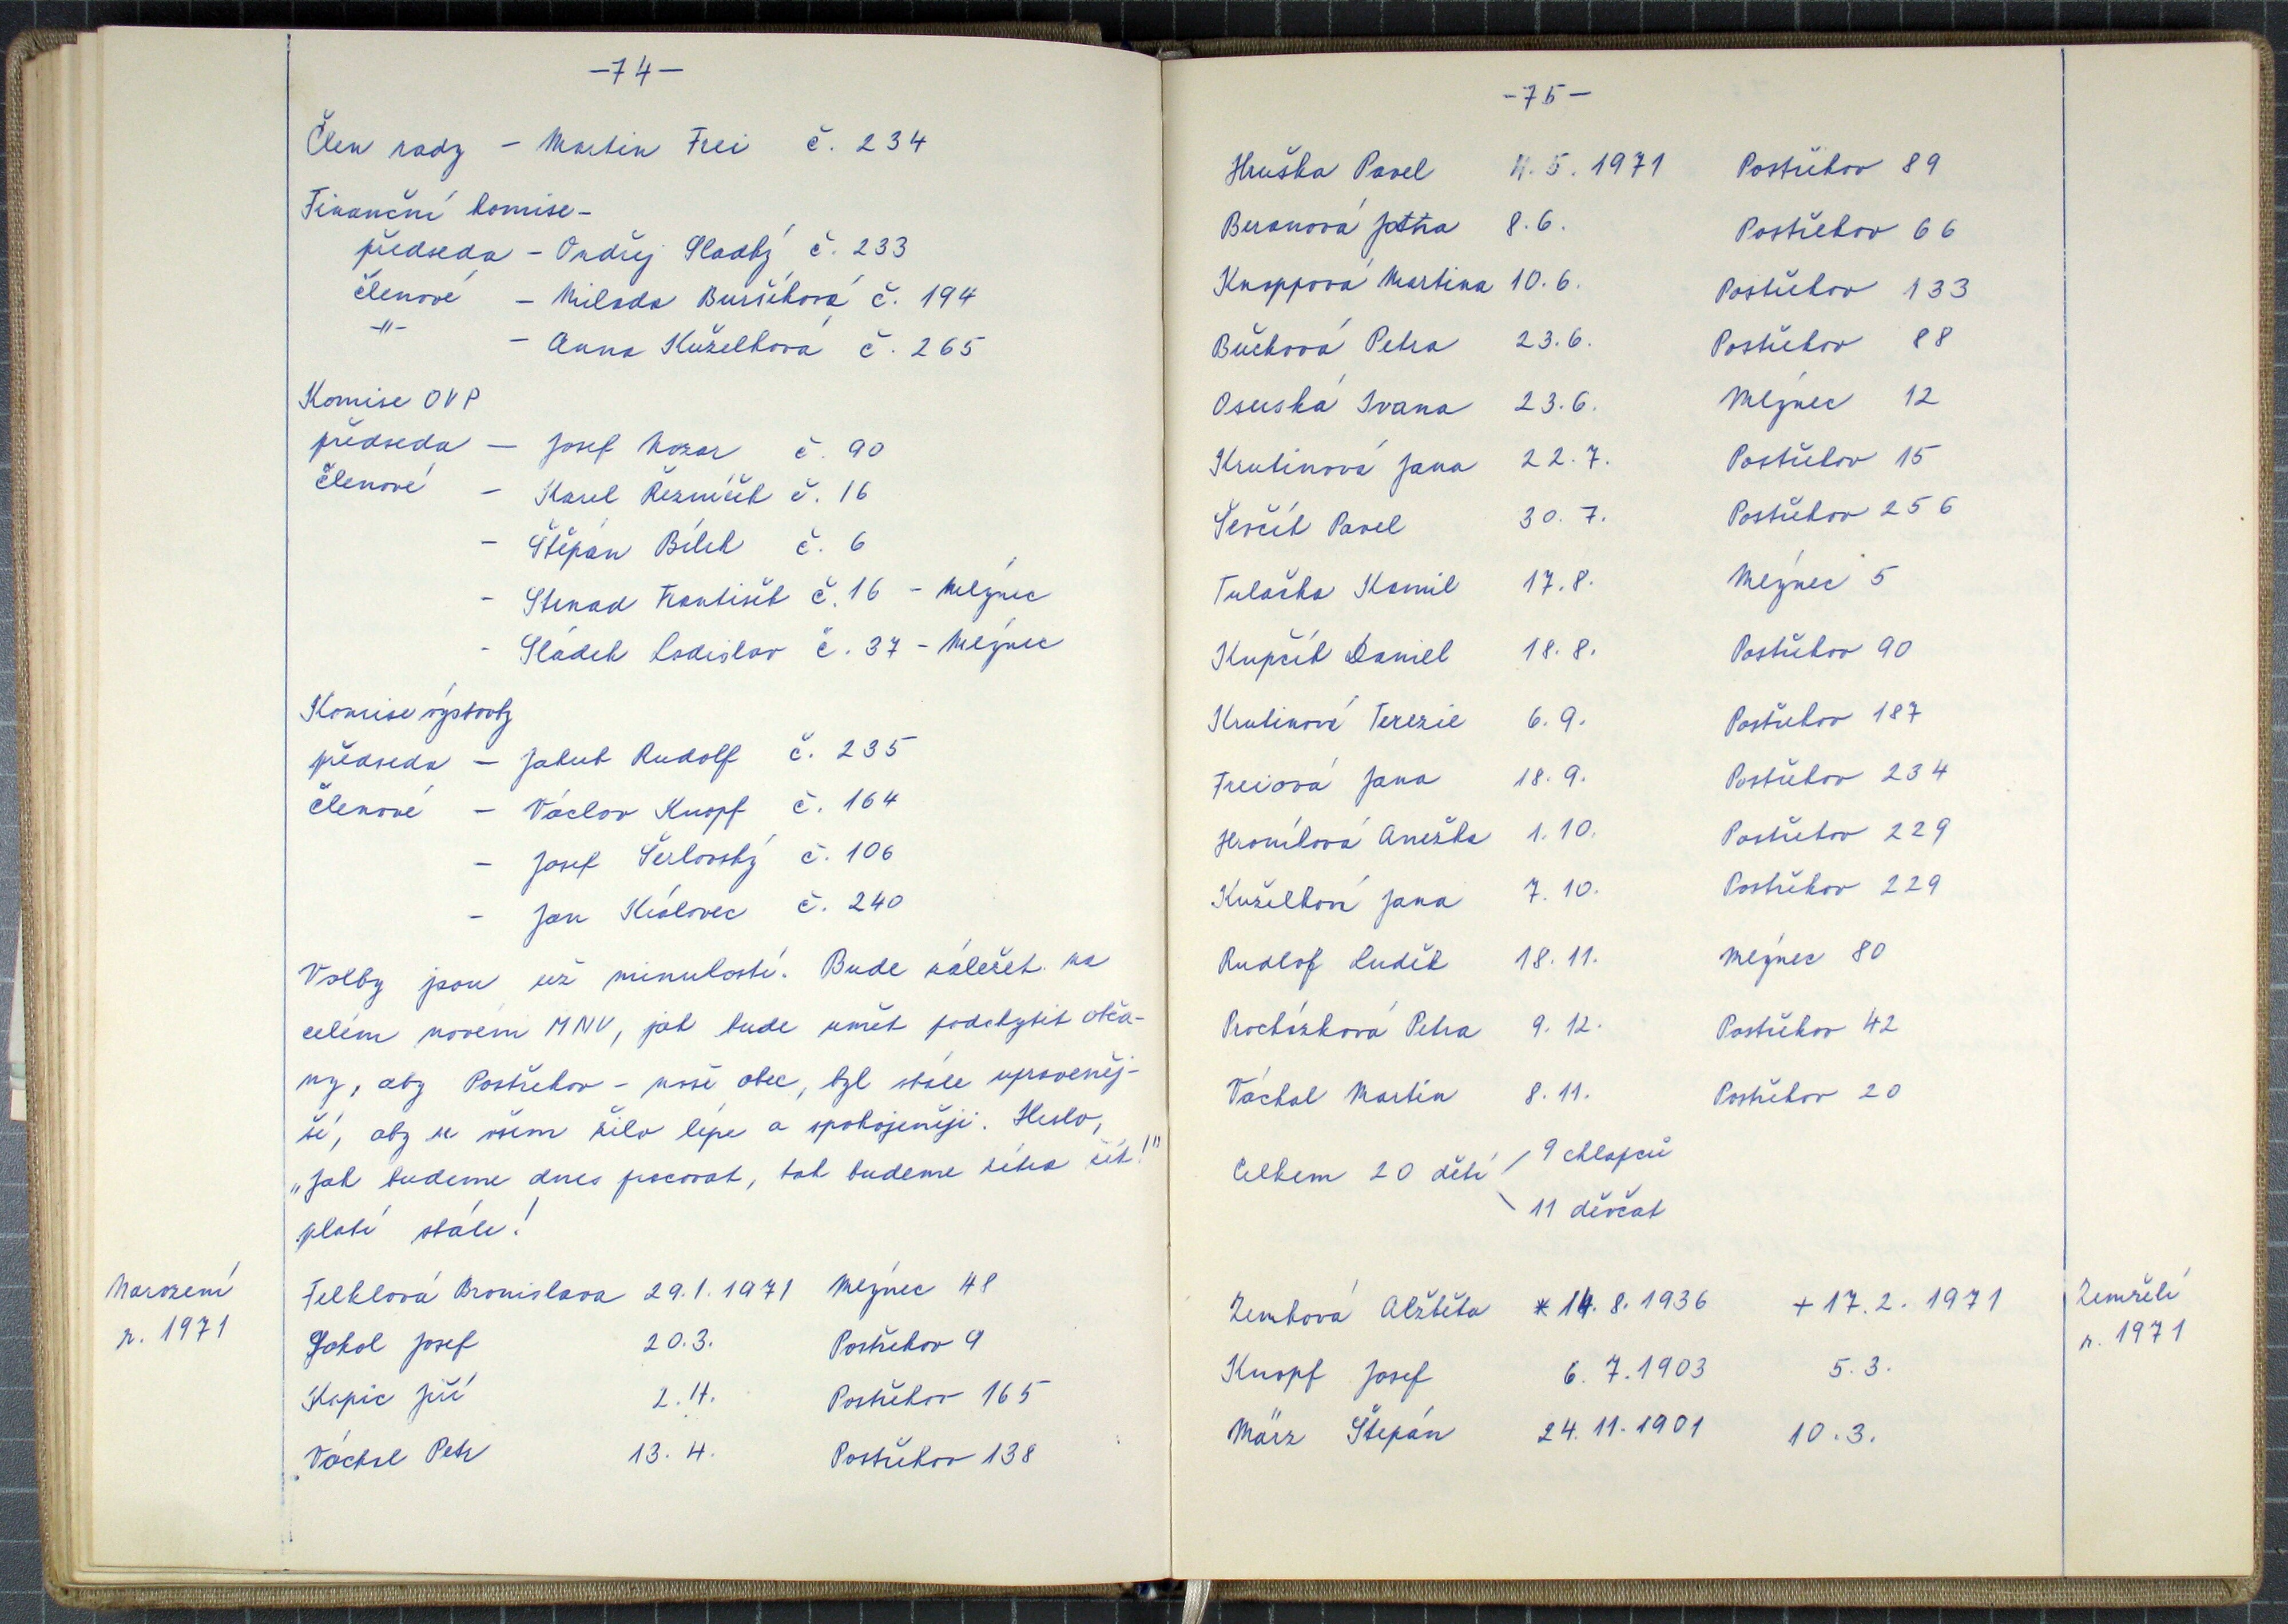 -74-
Člen rady - Martin Frei č. 234
Finanční komise-
předseda - Ondřej Sladký č. 233
členové - Milada Buršíková č. 194
-"- - Anna Kuželková č. 265
Komise OVP
předseda - Josef Nozar č. 90
členové - Karel Řezníček č. 16
- Štěpán Bílek č. 6
- Stenad František č. 16 - Mlýnec
- Sládek Ladislav č. 37 - Mlýnec
Komise výstavby
předseda - Jakub Rudolf č. 235
členové - Václav Knopf č. 164
- Josef Šerlovský č. 106
- Jan Královec č. 240
Volby jsou už minulostí. Bude záležet na
celém novém MNV, jak bude umět podchytit obča-
ny, aby Postřekov - naše obec, byl stále upraveněj-
ší, aby se všem žilo lépe a spokojeněji. Heslo,
„Jak budeme dnes pracovat, tak budeme zítra žít!"
platí stále!
Narození
r. 1971
Felklová Bronislava 29.1.1971 Mlýnec 48
Jakol Josef 20.3. Postřekov 9
Kupic Jiří 2.4. Postřekov 165
Váchal Petr 13.4. Postřekov 138
-75-
Hruška Pavel 4.5.1971 Postřekov 89
Beranová Jitka 8.6. Postřekov 66
Knoppová Martina 10.6. Postřekov 133
Bučková Petra 23.6. Postřekov 88
Osuská Ivana 23.6. Mlýnec 12
Krutinová Jana 22.7. Postřekov 15
Ševčík Pavel 30.7. Postřekov 256
Tulačka Kamil 17.8. Mlýnec 5
Kupčík Daniel 18.8. Postřekov 90
Krutinová Terezie 6.9. Postřekov 187
Freiová Jana 18.9. Postřekov 234
Hromíková Anežka 1.10. Postřekov 229
Kuželková Jana 7.10. Postřekov 229
Rudlof Luděk 18.11. Mlýnec 80
Procházková Petra 9.12. Postřekov 42
Váchal Martin 8.11. Postřekov 20
Celkem 20 dětí / 9 chlapců
\ 11 děvčat
Zemková Alžběta * 14.8.1936 + 17.2.1971
Knopf Josef 6.7.1903 5.3.
März Štěpán 24.11.1901 10.3.
Zemřelí
r. 1971